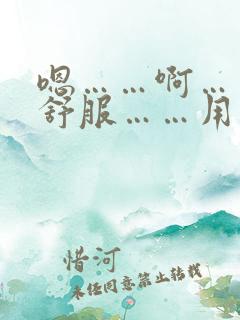 嗯……啊…
舒服……用
惜河
未经同意禁止转载